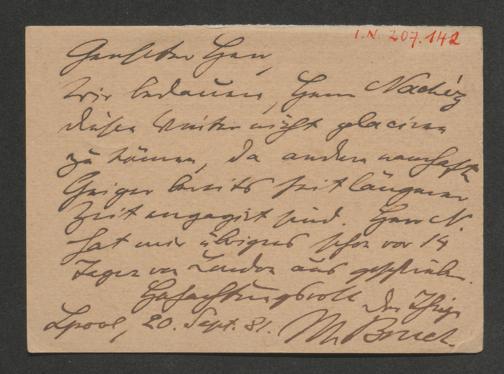 I.N. 207.142
Geehrter Herr,
Wir bedauern, Herrn Nachéz
diesen Winter nicht placiren
zu können, da andere namhafte
Geiger bereits seit längerer
Zeit engagirt sind. Herr N.
hat mir übrigens schon vor 14
Tagen von London aus geschrieben.
Hochachtungsvoll der Ihrige
Lpool, 20. Sept. 81. M. Bruch